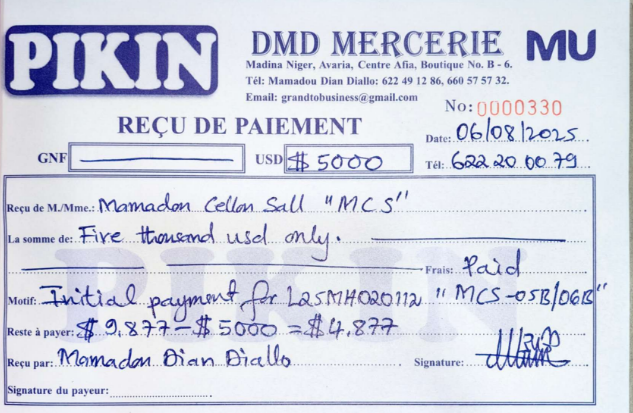 PIKIN
DMD MERCERIE MU
Madina Niger, Avaria, Centre Afia, Boutique No. B - 6.
Tél: Mamadou Dian Diallo: 622 49 12 86, 660 57 57 32.
Email: grandtobusiness@gmail.com
No: 0000330
REÇU DE PAIEMENT
Date: 06/08/2025
GNF USD $5000 Tél: 622 20 00 79
Reçu de M./Mme.: Mamadou Cellou Sall "MCS"
La somme de: Five thousand usd only.
Frais: Paid
Motif: Initial payment for L25MH020112 "MCS-05B/06B"
Reste à payer: $9,877 - $5000 = $4,877
Reçu par: Mamadou Dian Diallo Signature:
Signature du payeur:
PIKIN